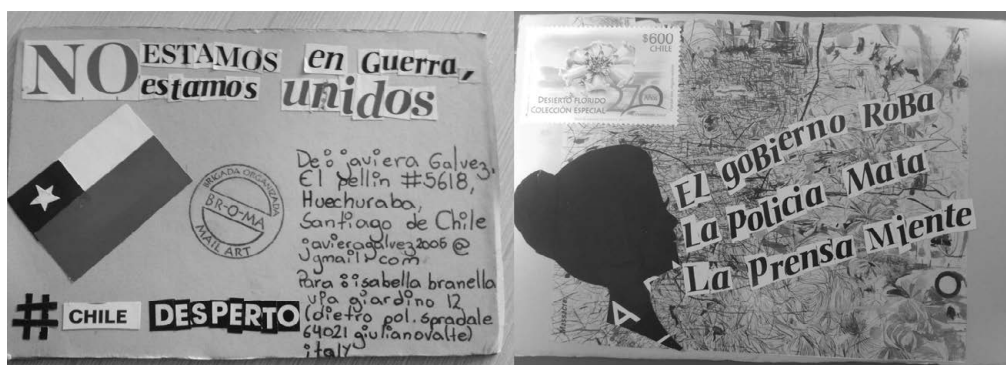 NO ESTAMOS en Guerra,
estamos unidos
BRIGADA ORGANIZADA
BR-O-MA
MAIL ART
De: javiera Galvez.
El pellin #5618,
Huechuraba,
Santiago de Chile
javieragalvez2006@
gmail.com
Para: isabella branella
via giardino 12
(dietro pol. spradale
64021 giulianovalte)
italy
# CHILE DESPERTO
$600
CHILE
DESIERTO FLORIDO
COLECCIÓN ESPECIAL
270
El goBierno RoBa
La Policia Mata
La Prensa Miente
A
O